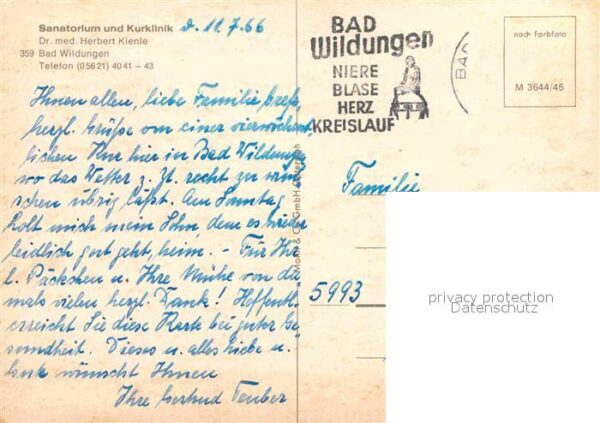 Sanatorium und Kurklinik
d. 11.7.66
Dr. med. Herbert Kienle
359 Bad Wildungen
Telefon (05621) 4041 – 43
Ihnen allen, liebe Familie
herzl. Grüße von einer vierwöchent-
lichen Kur hier in Bad Wildungen
wo das Wetter z. Zt. recht zu wün-
schen übrig läßt. Am Sonntag
holt mich mein Sohn dem es wieder
leidlich gut geht, heim. – Für Ihr
l. Päckchen u. Ihre Mühe von da-
mals vielen herzl. Dank! Hoffentl.
erreicht Sie diese Karte bei guter Ge-
sundheit. Dieses u. alles Liebe u.
Gute wünscht Ihnen
Ihre Gertrud Teuber
BAD
Wildungen
NIERE
BLASE
HERZ
KREISLAUF
BAD
nach Farbfoto
M 3644/45
Familie
5993
privacy protection
Datenschutz